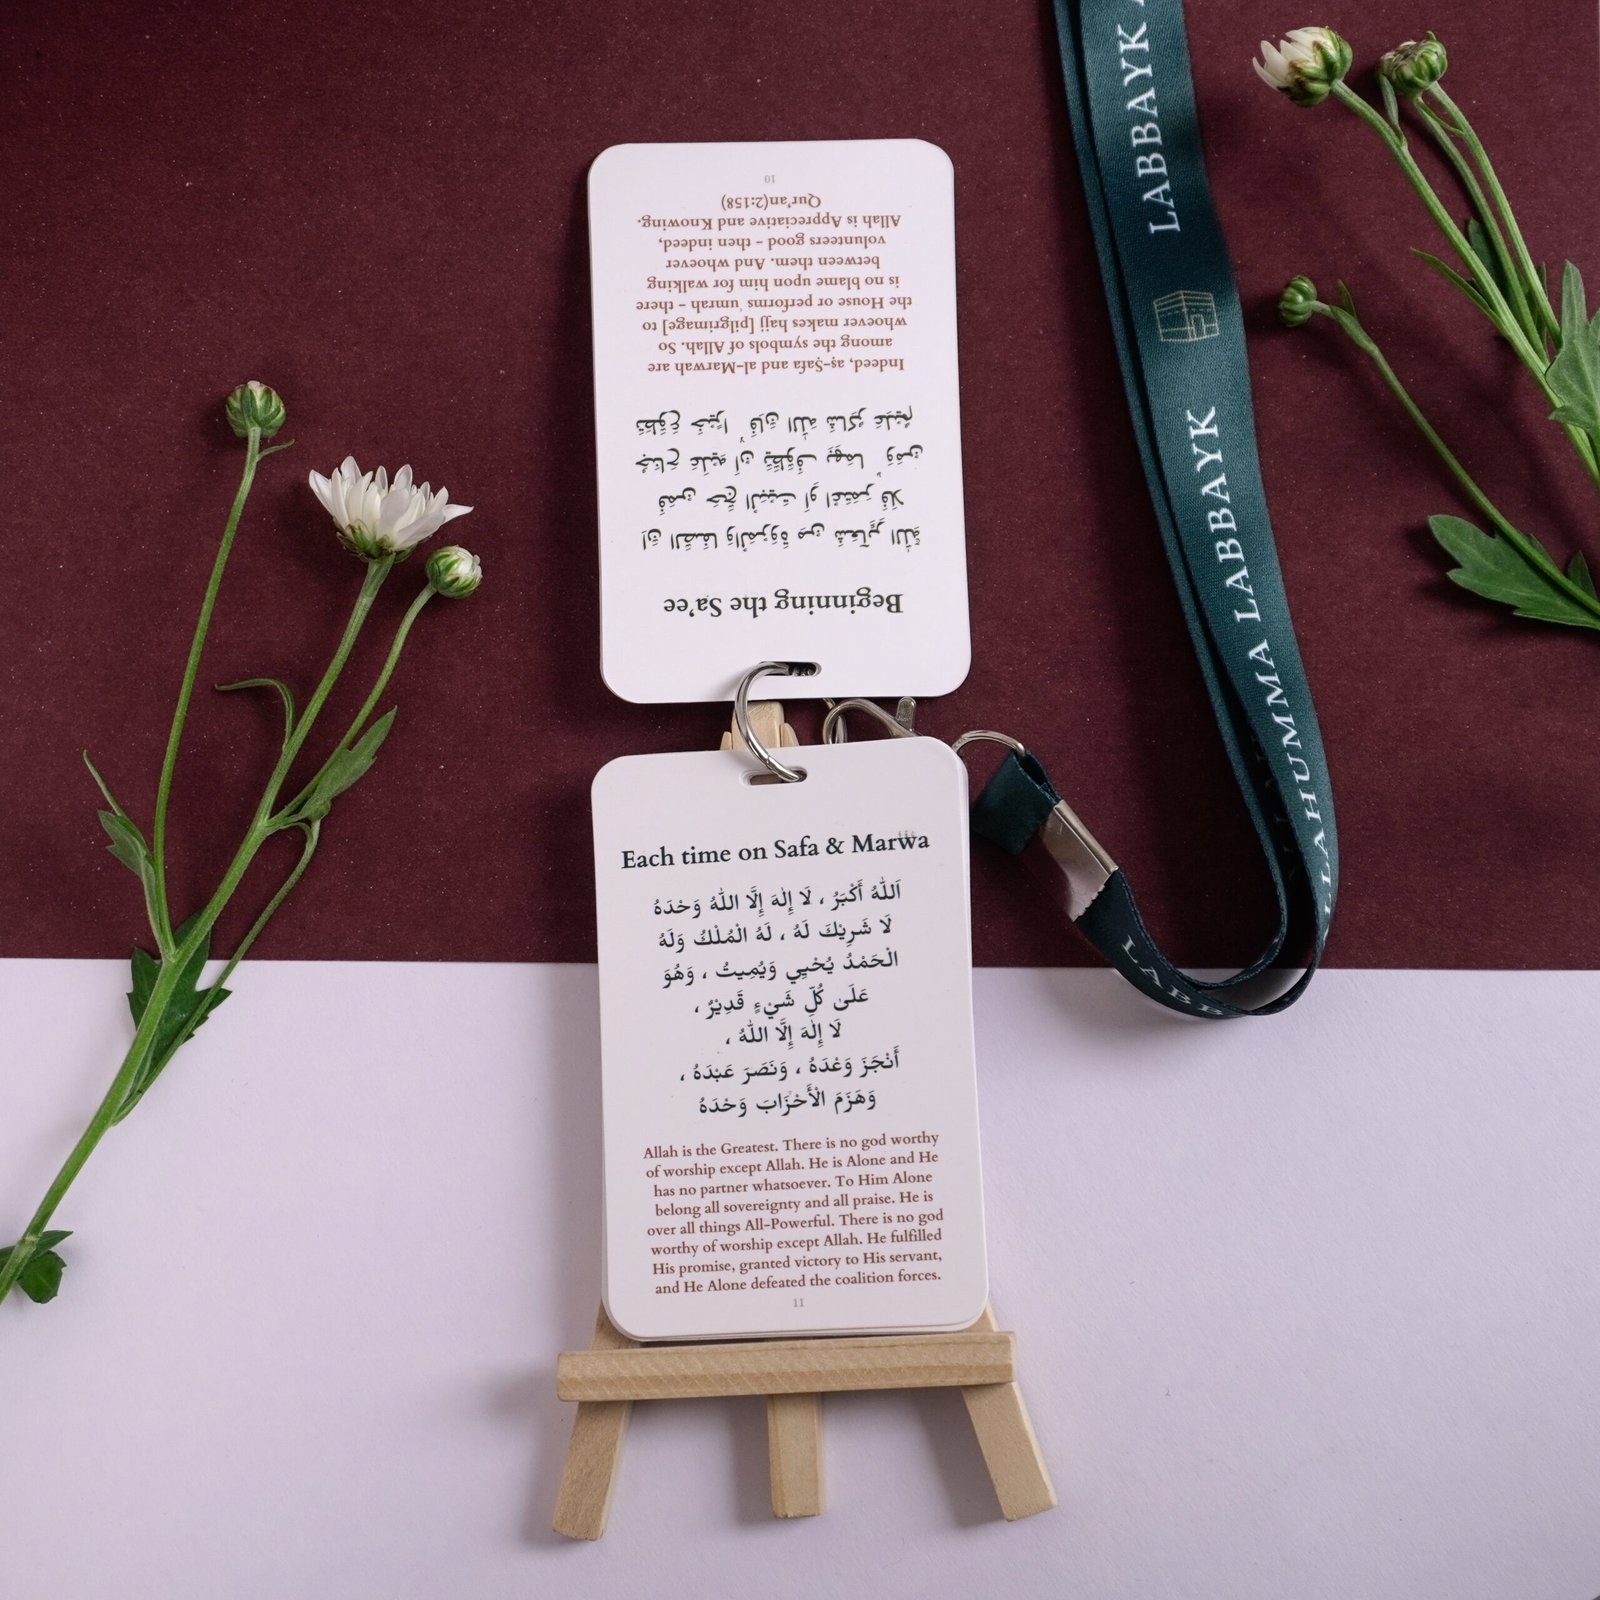 Beginning the Sa'ee
اِنَّ الصَّفَا وَالْمَرْوَةَ مِنْ شَعَآئِرِ اللّٰهِۚ
فَمَنْ حَجَّ الْبَيْتَ اَوِ اعْتَمَرَ فَلَا
جُنَاحَ عَلَيْهِ اَنْ يَّطَّوَّفَ بِهِمَاؕ وَمَنْ
تَطَوَّعَ خَيْرًاۙ فَاِنَّ اللّٰهَ شَاكِرٌ عَلِيْمٌ
Indeed, aṣ-Ṣafa and al-Marwah are
among the symbols of Allah. So
whoever makes hajj [pilgrimage] to
the House or performs ʿumrah - there
is no blame upon him for walking
between them. And whoever
volunteers good - then indeed,
Allah is Appreciative and Knowing.
Qur'an(2:158)
10
Each time on Safa & Marwa
اَللّٰهُ أَكْبَرُ ، لَا إِلٰهَ إِلَّا اللّٰهُ وَحْدَهُ
لَا شَرِيْكَ لَهُ ، لَهُ الْمُلْكُ وَلَهُ
الْحَمْدُ يُحْيِي وَيُمِيتُ ، وَهُوَ
عَلَىٰ كُلِّ شَيْءٍ قَدِيْرٌ ،
لَا إِلٰهَ إِلَّا اللّٰهُ ،
أَنْجَزَ وَعْدَهُ ، وَنَصَرَ عَبْدَهُ ،
وَهَزَمَ الْأَحْزَابَ وَحْدَهُ
Allah is the Greatest. There is no god worthy
of worship except Allah. He is Alone and He
has no partner whatsoever. To Him Alone
belong all sovereignty and all praise. He is
over all things All-Powerful. There is no god
worthy of worship except Allah. He fulfilled
His promise, granted victory to His servant,
and He Alone defeated the coalition forces.
11
LABBAYK
ALLAHUMMA LABBAYK
LABB